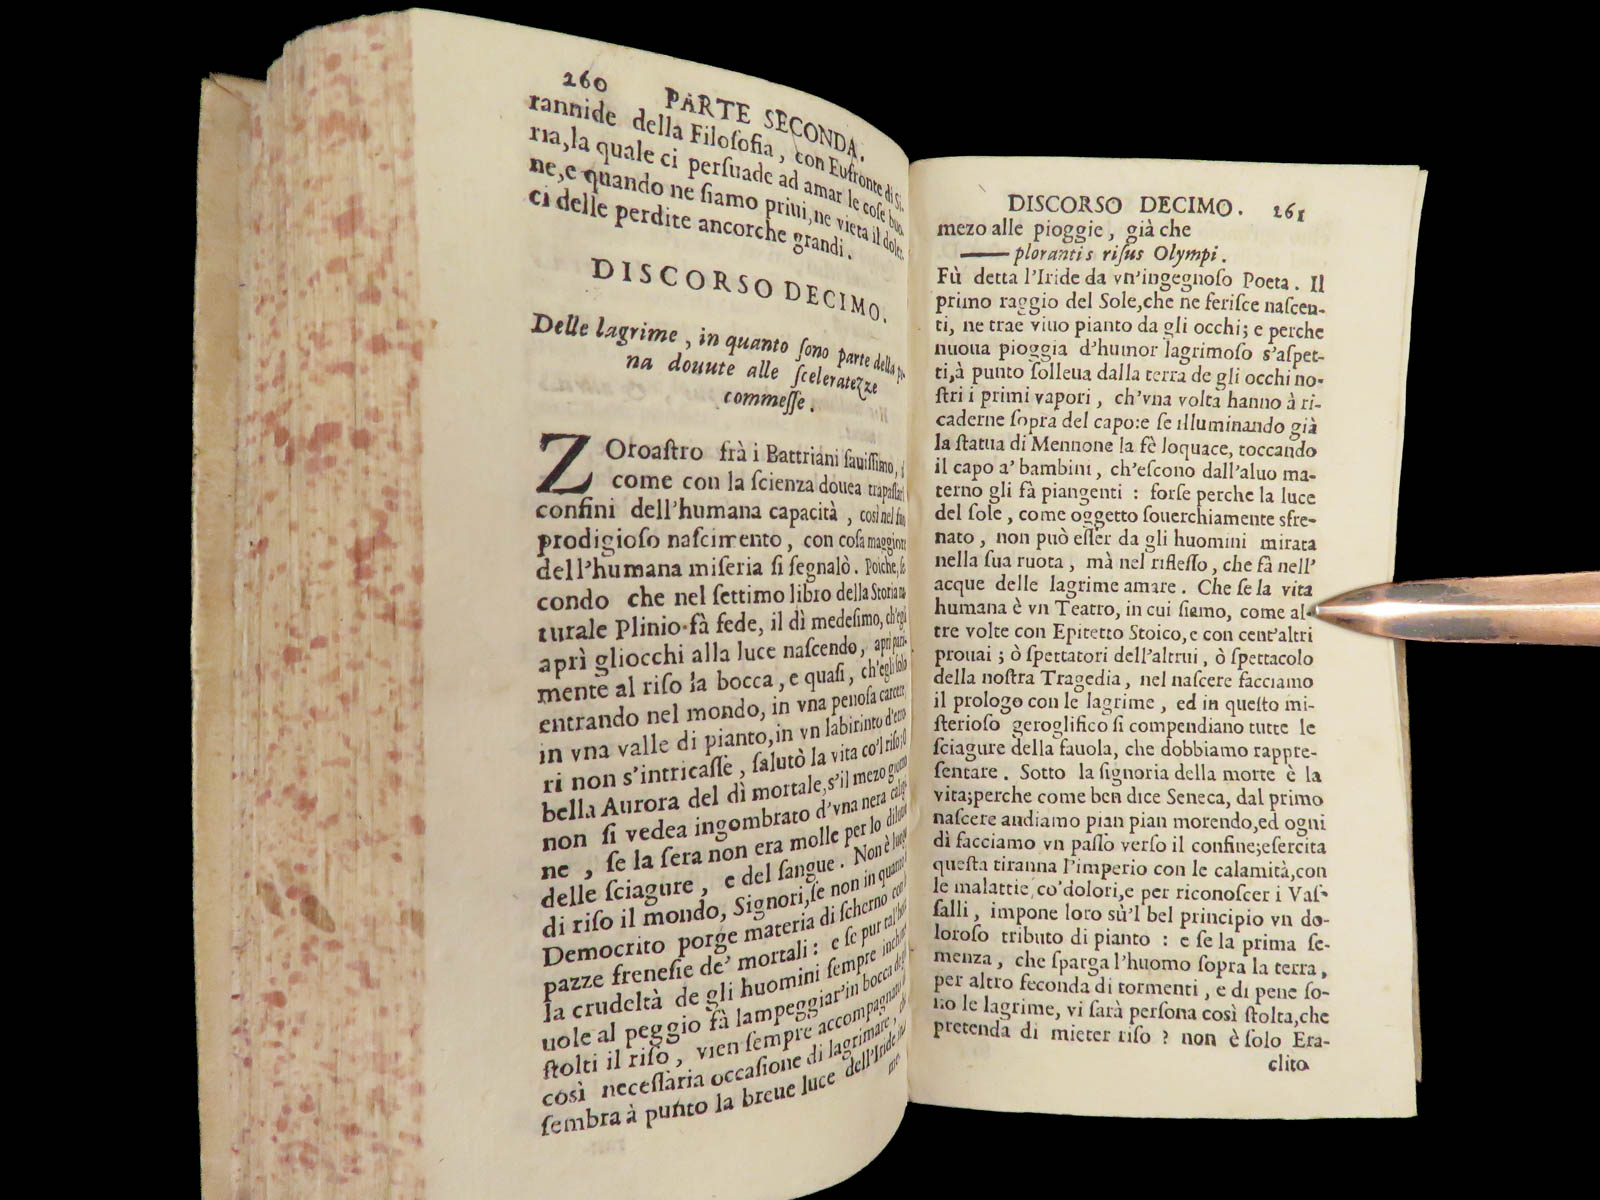 260 PARTE SECONDA.
rannide della Filoſofia, con Eufronte di Si-
ria, la quale ci perſuade ad amar le coſe buo-
ne, e quando ne ſiamo priui, ne vieta il doler-
ci delle perdite ancorche grandi.
DISCORSO DECIMO.
Delle lagrime, in quanto ſono parte della pe-
na douute alle ſceleratezze
commeſſe.
ZOroaſtro frà i Battriani ſauiſſimo,
come con la ſcienza douea trapaſſar i
confini dell'humana capacità, così nel ſuo
prodigioſo naſcimento, con coſa maggiore
dell'humana miſeria ſi ſegnalò. Poiche, ſe
condo che nel ſettimo libro della Storia na
turale Plinio fà fede, il dì medeſimo, ch'egli
aprì gliocchi alla luce naſcendo, aprì pari-
mente al riſo la bocca, e quaſi, ch'egli ſolo
entrando nel mondo, in vna penoſa carcere
in vna valle di pianto, in vn labirinto d'erro
ri non s'intricaſſe, ſalutò la vita co'l riſo; O
bella Aurora del dì mortale, s'il mezo giorno
non ſi vedea ingombrato d'vna nera calig-
ne, ſe la ſera non era molle per lo diluuio
delle ſciagure, e del ſangue. Non è luogo
di riſo il mondo, Signori, ſe non in quanto
Democrito porge materia di ſcherno con
pazze freneſie de' mortali: e ſe pur tal'hora
la crudeltà de gli huomini ſempre inchi
uole al peggio fà lampeggiar'in bocca de gli
ſtolti il riſo, vien ſempre accompagnato
così neceſſaria occaſione di lagrimare,
ſembra à punto la breue luce dell'Iride in
me-
DISCORSO DECIMO. 261
mezo alle pioggie, già che
—— plorantis riſus Olympi.
Fù detta l'Iride da vn'ingegnoſo Poeta. Il
primo raggio del Sole, che ne feriſce naſcen-
ti, ne trae viuo pianto da gli occhi; e perche
nuoua pioggia d'humor lagrimoſo s'aſpet-
ti, à punto ſolleua dalla terra de gli occhi no-
ſtri i primi vapori, ch'vna volta hanno à ri-
caderne ſopra del capo: e ſe illuminando già
la ſtatua di Mennone la fè loquace, toccando
il capo a' bambini, ch'eſcono dall'aluo ma-
terno gli fà piangenti: forſe perche la luce
del ſole, come oggetto ſouerchiamente sfre-
nato, non può eſſer da gli huomini mirata
nella ſua ruota, mà nel rifleſſo, che fà nell'
acque delle lagrime amare. Che ſe la vita
humana è vn Teatro, in cui ſiamo, come al-
tre volte con Epitetto Stoico, e con cent'altri
prouai; ò ſpettatori dell'altrui, ò ſpettacolo
della noſtra Tragedia, nel naſcere facciamo
il prologo con le lagrime, ed in queſto mi-
ſterioſo geroglifico ſi compendiano tutte le
ſciagure della fauola, che dobbiamo rappre-
ſentare. Sotto la ſignoria della morte è la
vita; perche come ben dice Seneca, dal primo
naſcere andiamo pian pian morendo, ed ogni
dì facciamo vn paſſo verſo il confine; eſercita
queſta tiranna l'imperio con le calamità, con
le malattie, co'dolori, e per riconoſcer i Vaſ-
ſalli, impone loro sù'l bel principio vn do-
loroſo tributo di pianto: e ſe la prima ſe-
menza, che ſparga l'huomo ſopra la terra,
per altro feconda di tormenti, e di pene ſo-
no le lagrime, vi ſarà perſona così ſtolta, che
pretenda di mieter riſo? non è ſolo Era-
clito